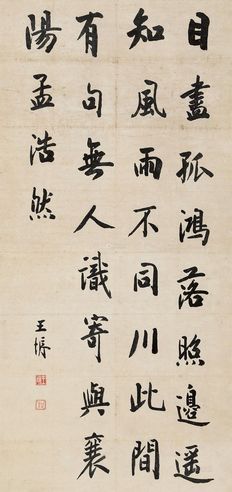 目盡孤鴻落照邊遥
知風雨不同川此間
有句無人識寄與襄
陽孟浩然
王